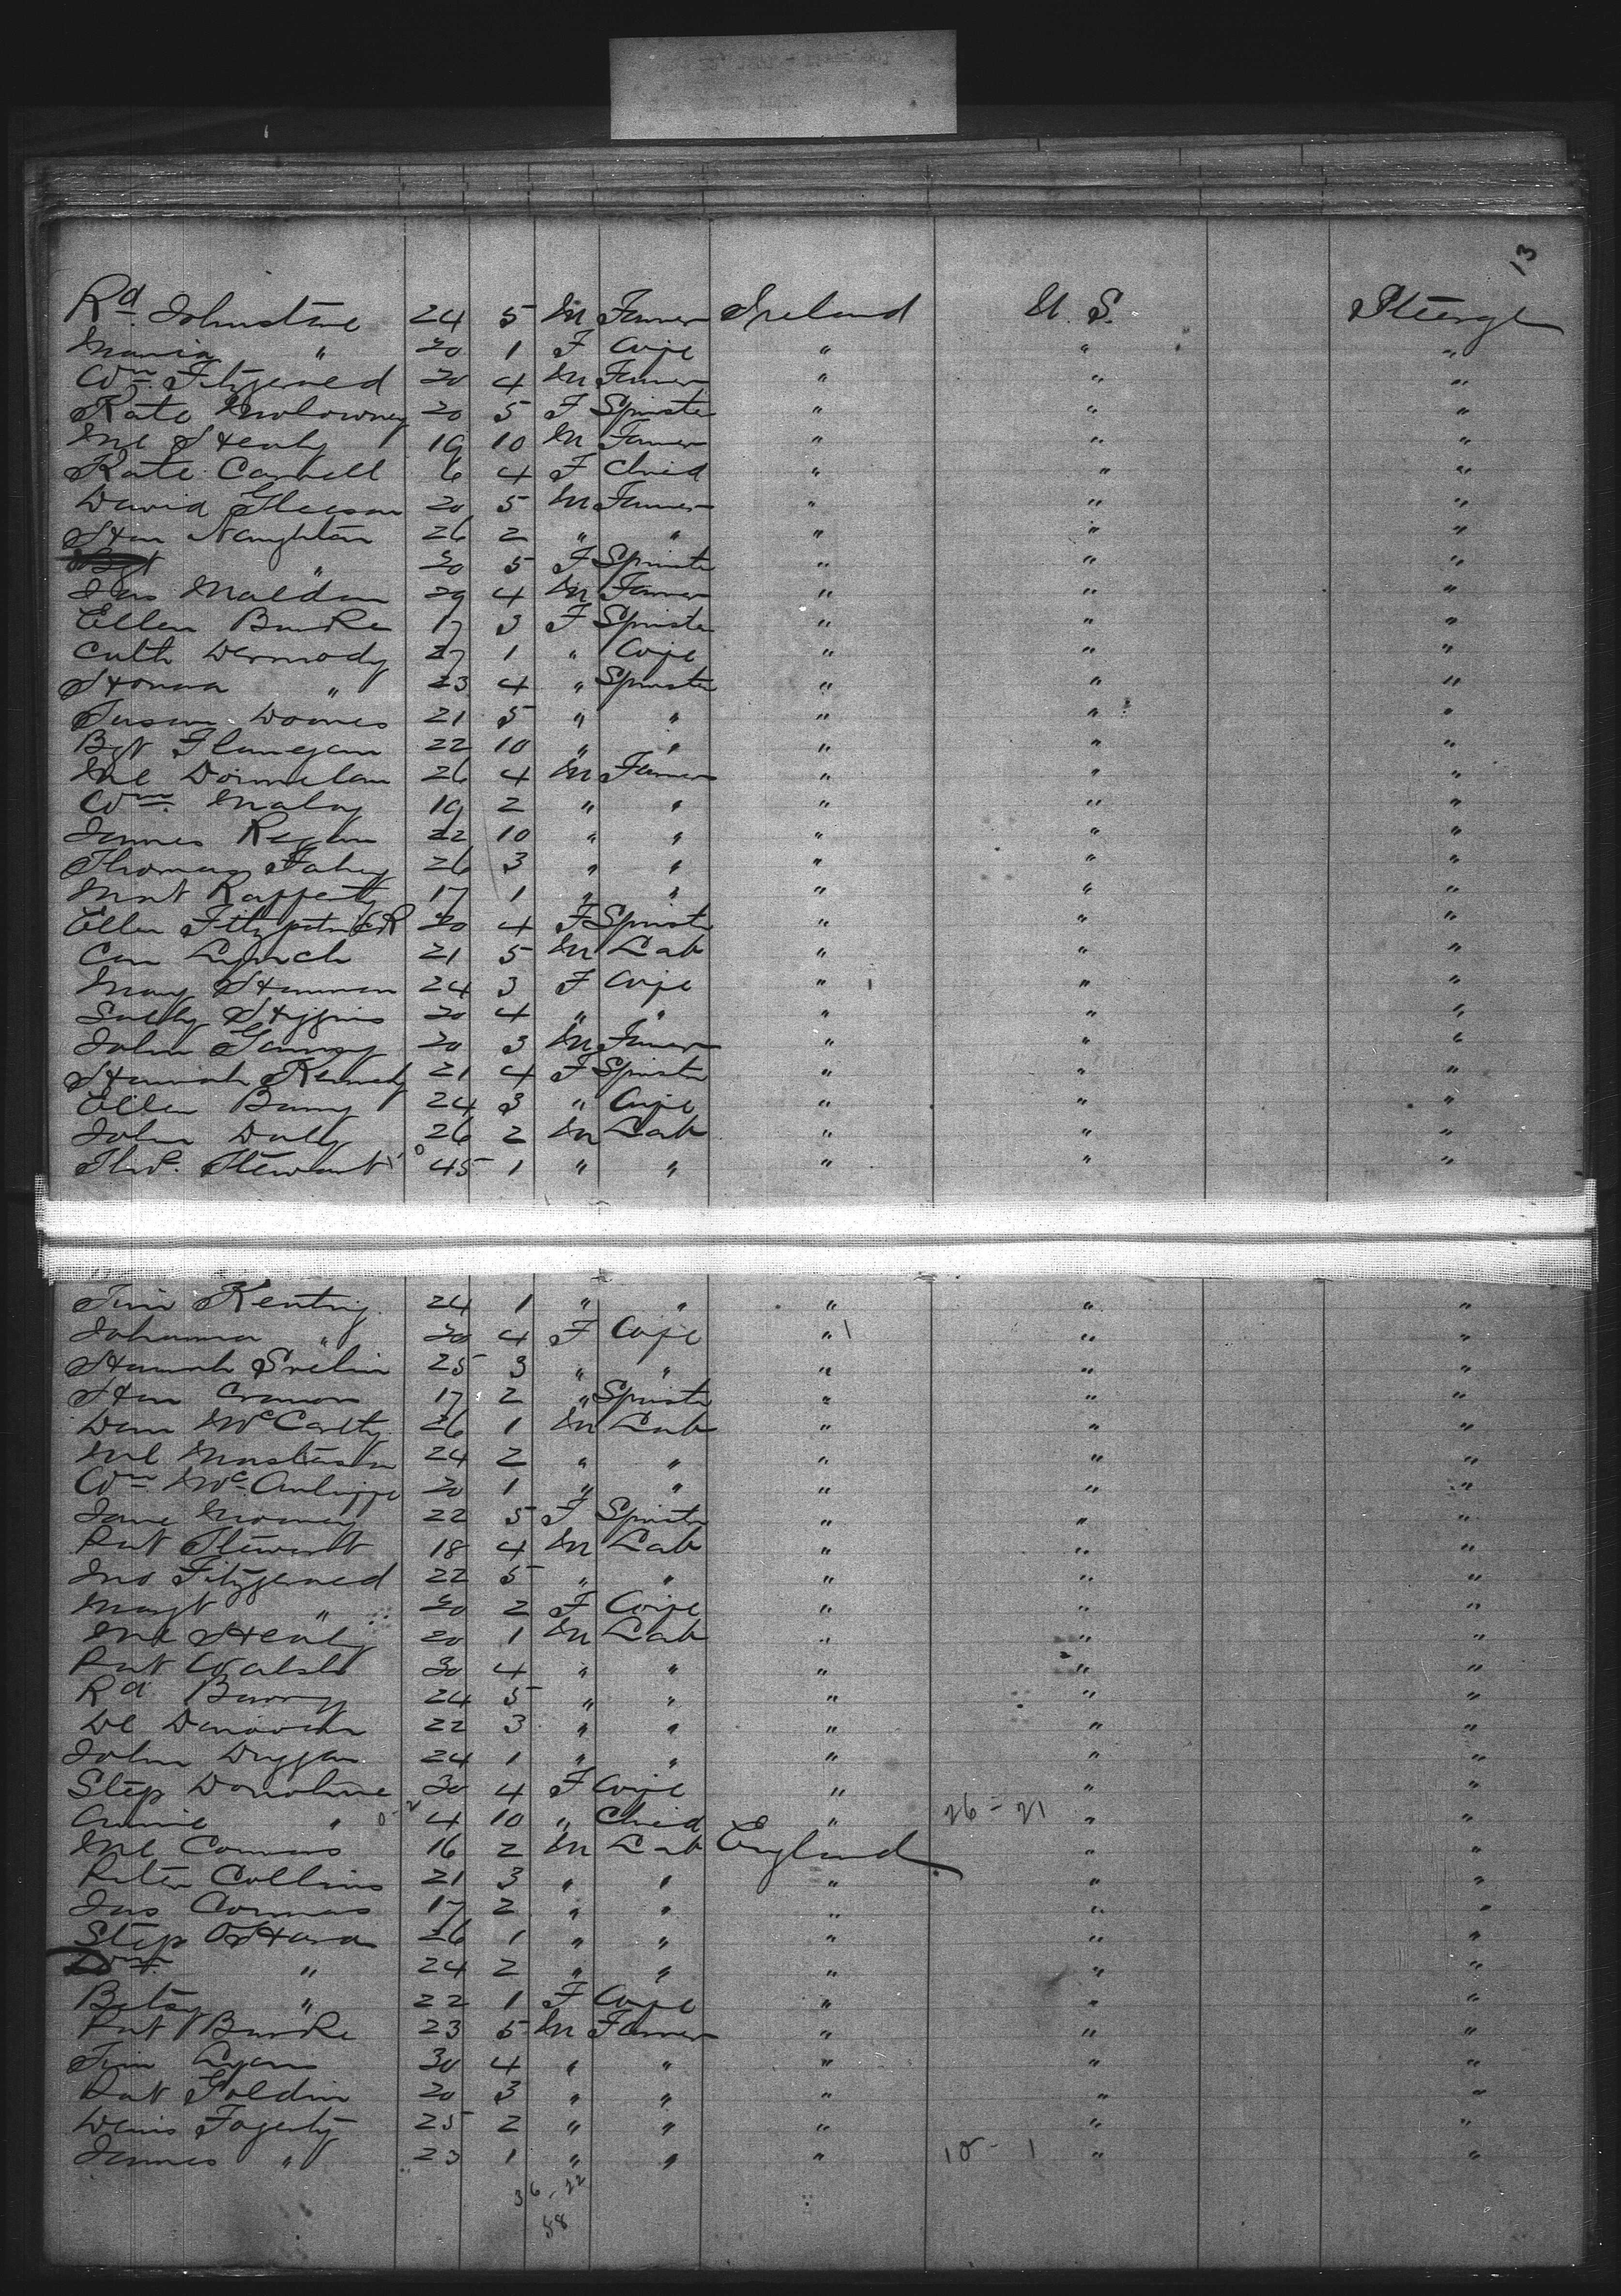 13
Rd. Johnstone 24 5 M Farmer Ireland U. S. Steerage
Maria " 20 1 F Wife " " "
Wm. Fitzgerald 20 4 M Farmer " " "
Kate Molowney 20 5 F Spinster " " "
Ml Healy 19 10 M Farmer " " "
Kate Carbell 6 4 F Child " " "
David Gleeson 20 5 M Farmer " " "
Han Naughton 26 2 " " " " "
Bgt " 20 5 F Spinster " " "
Jas Maldon 29 4 M Farmer " " "
Ellen Burke 17 3 F Spinster " " "
Cath Dermody 27 1 " Wife " " "
Honna " 23 4 " Spinster " " "
Susan 21 5 " " " " "
Bgt Flanegan 22 10 " " " " "
Ml Donnelan 26 4 M Farmer " " "
Wm. Malay 19 2 " " " " "
James Regan 22 10 " " " " "
Thomas Fahey 26 3 " " " " "
Mat Rafferty 17 1 " " " " "
Ellen Fitzpatrick 20 4 F Spinster " " "
Con Lynch 21 5 M Lab " " "
Mary Hannan 24 3 F Wife " " "
Sally Higgins 20 4 " " " " "
John 20 3 M Farmer " " "
Hannah Kennedy 21 4 F Spinster " " "
Ellen Barry 24 3 " Wife " " "
John Daly 26 2 M Lab " " "
Thos. Stewart 45 1 " " " " "
Tim Keating 24 1 " " " " "
Johanna " 20 4 F Wife " " "
Hannah 25 3 " " " " "
Han Cronon 17 2 " Spinster " " "
Dan McCarthy 26 1 M Lab " " "
Ml 24 2 " " " " "
Wm. McAuliffe 20 1 " " " " "
Jane 22 5 F Spinster " " "
Pat Stewart 18 4 M Lab " " "
Jno Fitzgerald 22 5 " " " " "
Magt " 20 2 F Wife " " "
Ml Healy 20 1 M Lab " " "
Pat Walsh 30 4 " " " " "
Rd Barry 24 5 " " " " "
Dl Donovan 22 3 " " " " "
John Duggan 24 1 " " " " "
Step Donohue 30 4 F Wife " " "
Annie " 4 10 " Child " 26 - 21 " "
Ml Connors 16 2 M Lab England " "
Peter Collins 21 3 " " " " "
Jas Connors 17 2 " " " " "
Step O'Hara 26 1 " " " " "
Wm. " 24 2 " " " " "
Betsy " 22 1 F Wife " " "
Pat Burke 23 5 M Farmer " " "
Tim Lyons 30 4 " " " " "
Pat Goldin 20 3 " " " " "
Denis Fogerty 25 2 " " " " "
James " 23 1 " " " 10 - 1 " "
36 - 22
58